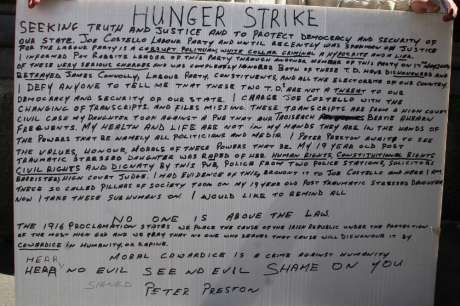 HUNGER STRIKE
SEEKING TRUTH AND JUSTICE AND TO PROTECT DEMOCRACY AND SECURITY OF
OUR STATE. JOE COSTELLO LABOUR PARTY AND UNTIL RECENTLY WAS SPOKSMAN ON JUSTICE
FOR THE LABOUR PARTY IS A CORRUPT POLITICIAN, WHITE COLLAR CRIMINAL A HYPOCRITE AND LIAR.
I INFORMED PAT RABITTE LEADER OF THIS PARTY THROUGH ANOTHER MEMBER OF THIS PARTY ON
OF THESE VERY SERIOUS CHARGES AND WAS COMPLETELY IGNORED BOTH OF THESE T.D. HAVE DISHONOURED AND
BETRAYED JAMES CONNOLLY, LABOUR PARTY, CONSTITUENTS, AND ALL THE ELECTORS OF OUR COUNTRY.
I DEFY ANYONE TO TELL ME THAT THESE TWO T.D'. ARE NOT A THREAT TO OUR
DEMOCRACY AND SECURITY OF OUR STATE. I CHARGE JOE COSTELLO WITH THE
CHANGING OF TRANSCRIPTS AND FILES MISSING. THESE TRANSCRIPTS ARE FROM A HIGH COURT
CIVIL CASE MY DAUGHTER TOOK AGAINST A PUB THAT OUR TAOISEACH BERTIE AHEARN
FREQUENTS. MY HEALTH AND LIFE ARE NOT IN MY HANDS THEY ARE IN THE HANDS OF
THE POWERS THAT BE NAMELY ALL POLITICIANS AND MEDIA I PETER PRESTON AWAITS TO SEE
THE VALUES, HONOUR, MORALS OF THESE POWERS THAT BE. MY 19 YEAR OLD POST
TRAUMATIC STRESSED DAUGHTER WAS RAPED OF HER HUMAN RIGHTS, CONSTITUTIONAL RIGHTS
CIVIL RIGHTS AND DIGNITY BY THIS PUB, POLICE FROM TWO POLICE STATIONS, SOLICITORS
BARRISTERS, HIGH COURT JUDGE. I HAD EVIDENCE OF THIS, BROUGHT IT TO JOE COSTELLO AND HERE I AM
THESE SO CALLED PILLARS OF SOCIETY TOOK ON MY 19 YEAR OLD POST TRAUMATIC STRESSED DAUGHTER
NOW I TAKE THESE SUBHUMANS ON I WOULD LIKE TO REMIND ALL
NO ONE IS ABOVE THE LAW.
THE 1916 PROCLAMATION STATES WE PLACE THE CAUSE OF THE IRISH REPUBLIC UNDER THE PROTECTION
OF THE GOD AND WE PRAY THAT NO ONE WHO SERVES THAT CAUSE WILL DISHONOUR IT BY
COWARDICE IN HUMANITY, OR RAPINE.
MORAL COWARDICE IS A CRIME AGAINST HUMANITY
HEAR NO EVIL SEE NO EVIL SHAME ON YOU
SIGNED PETER PRESTON